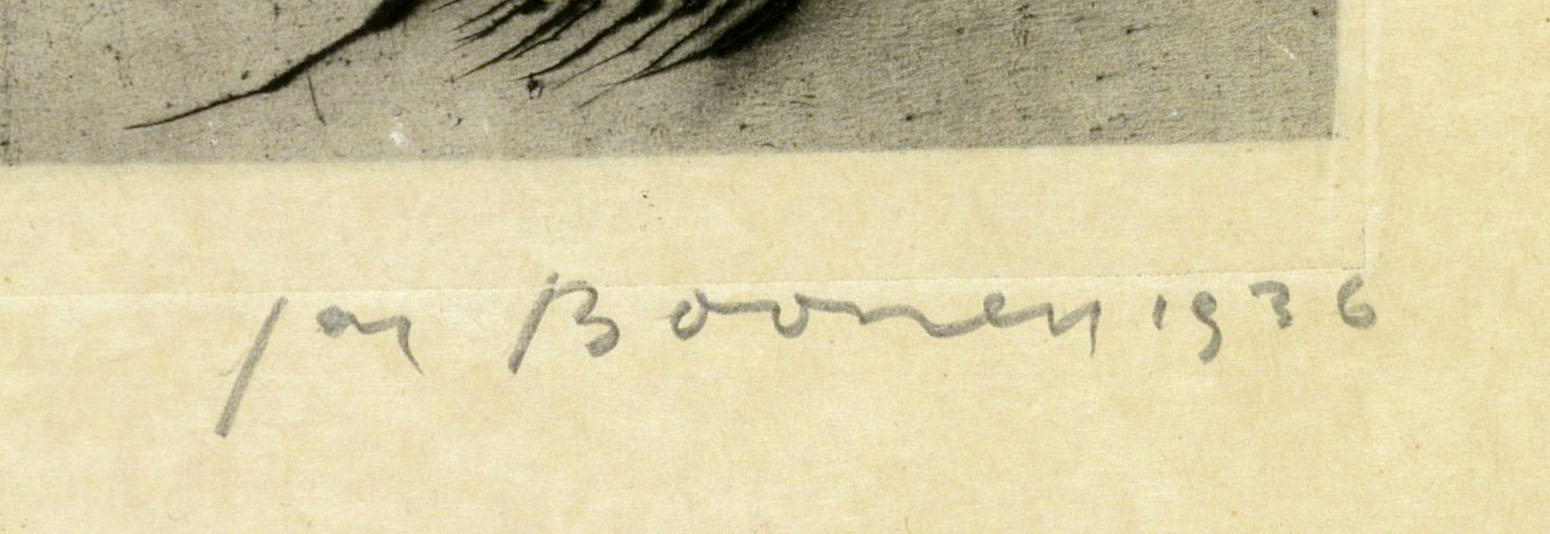 Jos Boonen 1936